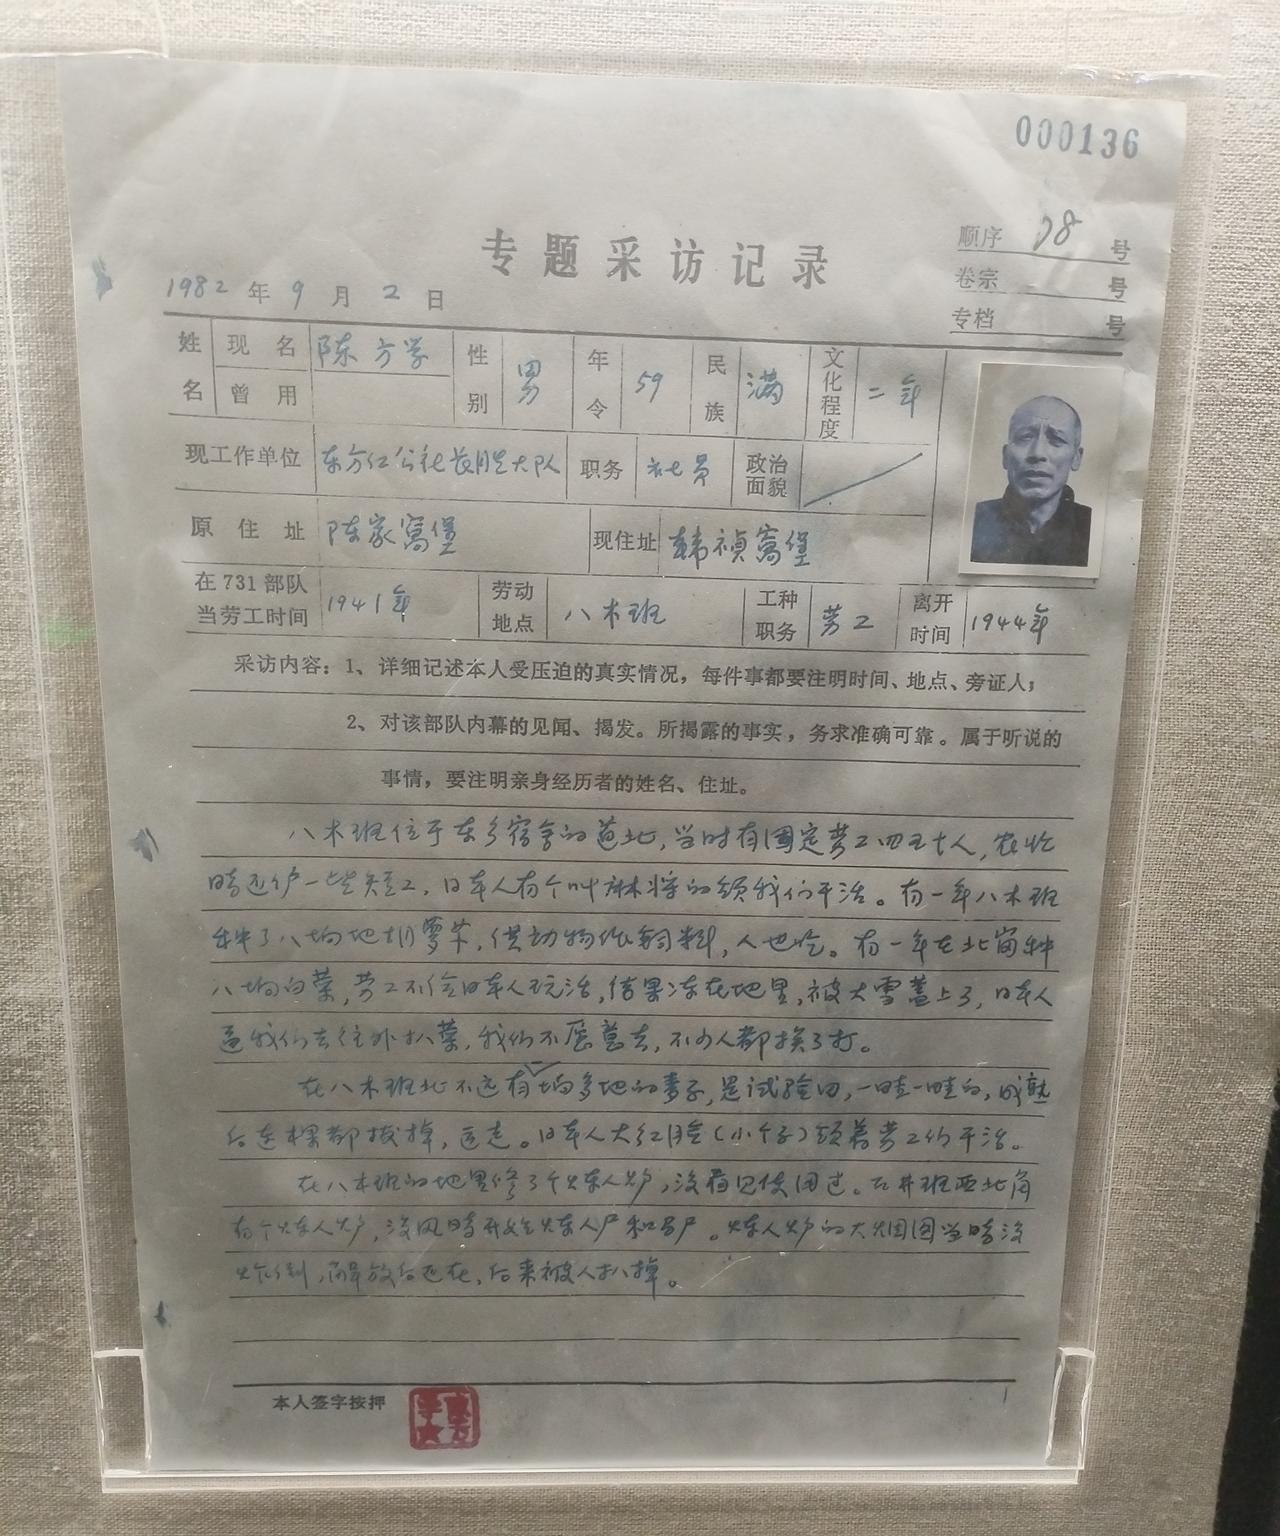 000136
专题采访记录
顺序 78 号
卷宗 号
专档 号
1982年9月2日
姓名 现名 陈方学 性别 男 年令 59 民族 满 文化程度 二年
曾用
现工作单位 东方红公社长胜大队 职务 社员 政治面貌
原住址 陈家窝堡 现住址 韩祯窝堡
在731部队当劳工时间 1941年 劳动地点 八木班 工种职务 劳工 离开时间 1944年
采访内容：1、详细记述本人受压迫的真实情况，每件事都要注明时间、地点、旁证人；
2、对该部队内幕的见闻、揭发。所揭露的事实，务求准确可靠。属于听说的
事情，要注明亲身经历者的姓名、住址。
八木班位于东乡宿舍的道北，当时有固定劳工四五十人，农忙
时还雇一些短工，日本人有个叫麻将的领我们干活。有一年八木班
种了八垧地胡萝卜，供动物作饲料，人也吃。有一年在北岗种
八垧白菜，劳工不给日本人玩活，结果冻在地里，被大雪盖上了，日本人
逼我们去往外扒菜，我们不愿意去，不少人都挨了打。
在八木班北不远有垧多地的麦子，是试验田，一畦一畦的，成熟
后连棵都拔掉，运走。日本人大红脸（小个子）领着劳工们干活。
在八木班的地里修了个炼人炉，没看见使用过。石井班西北角
有个炼人炉，没风时开始炼人尸和马尸。炼人炉的大烟囱当时没
炸倒，解放后还在，后来被人扒掉。
本人签字按押